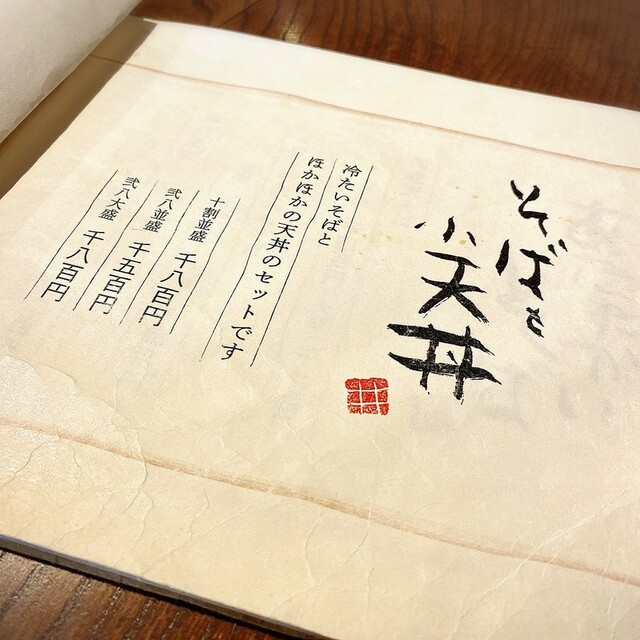 そばと
小天丼
冷たいそばと
ほかほかの天丼のセットです
十割並盛 千八百円
弐八並盛 千五百円
弐八大盛 千八百円